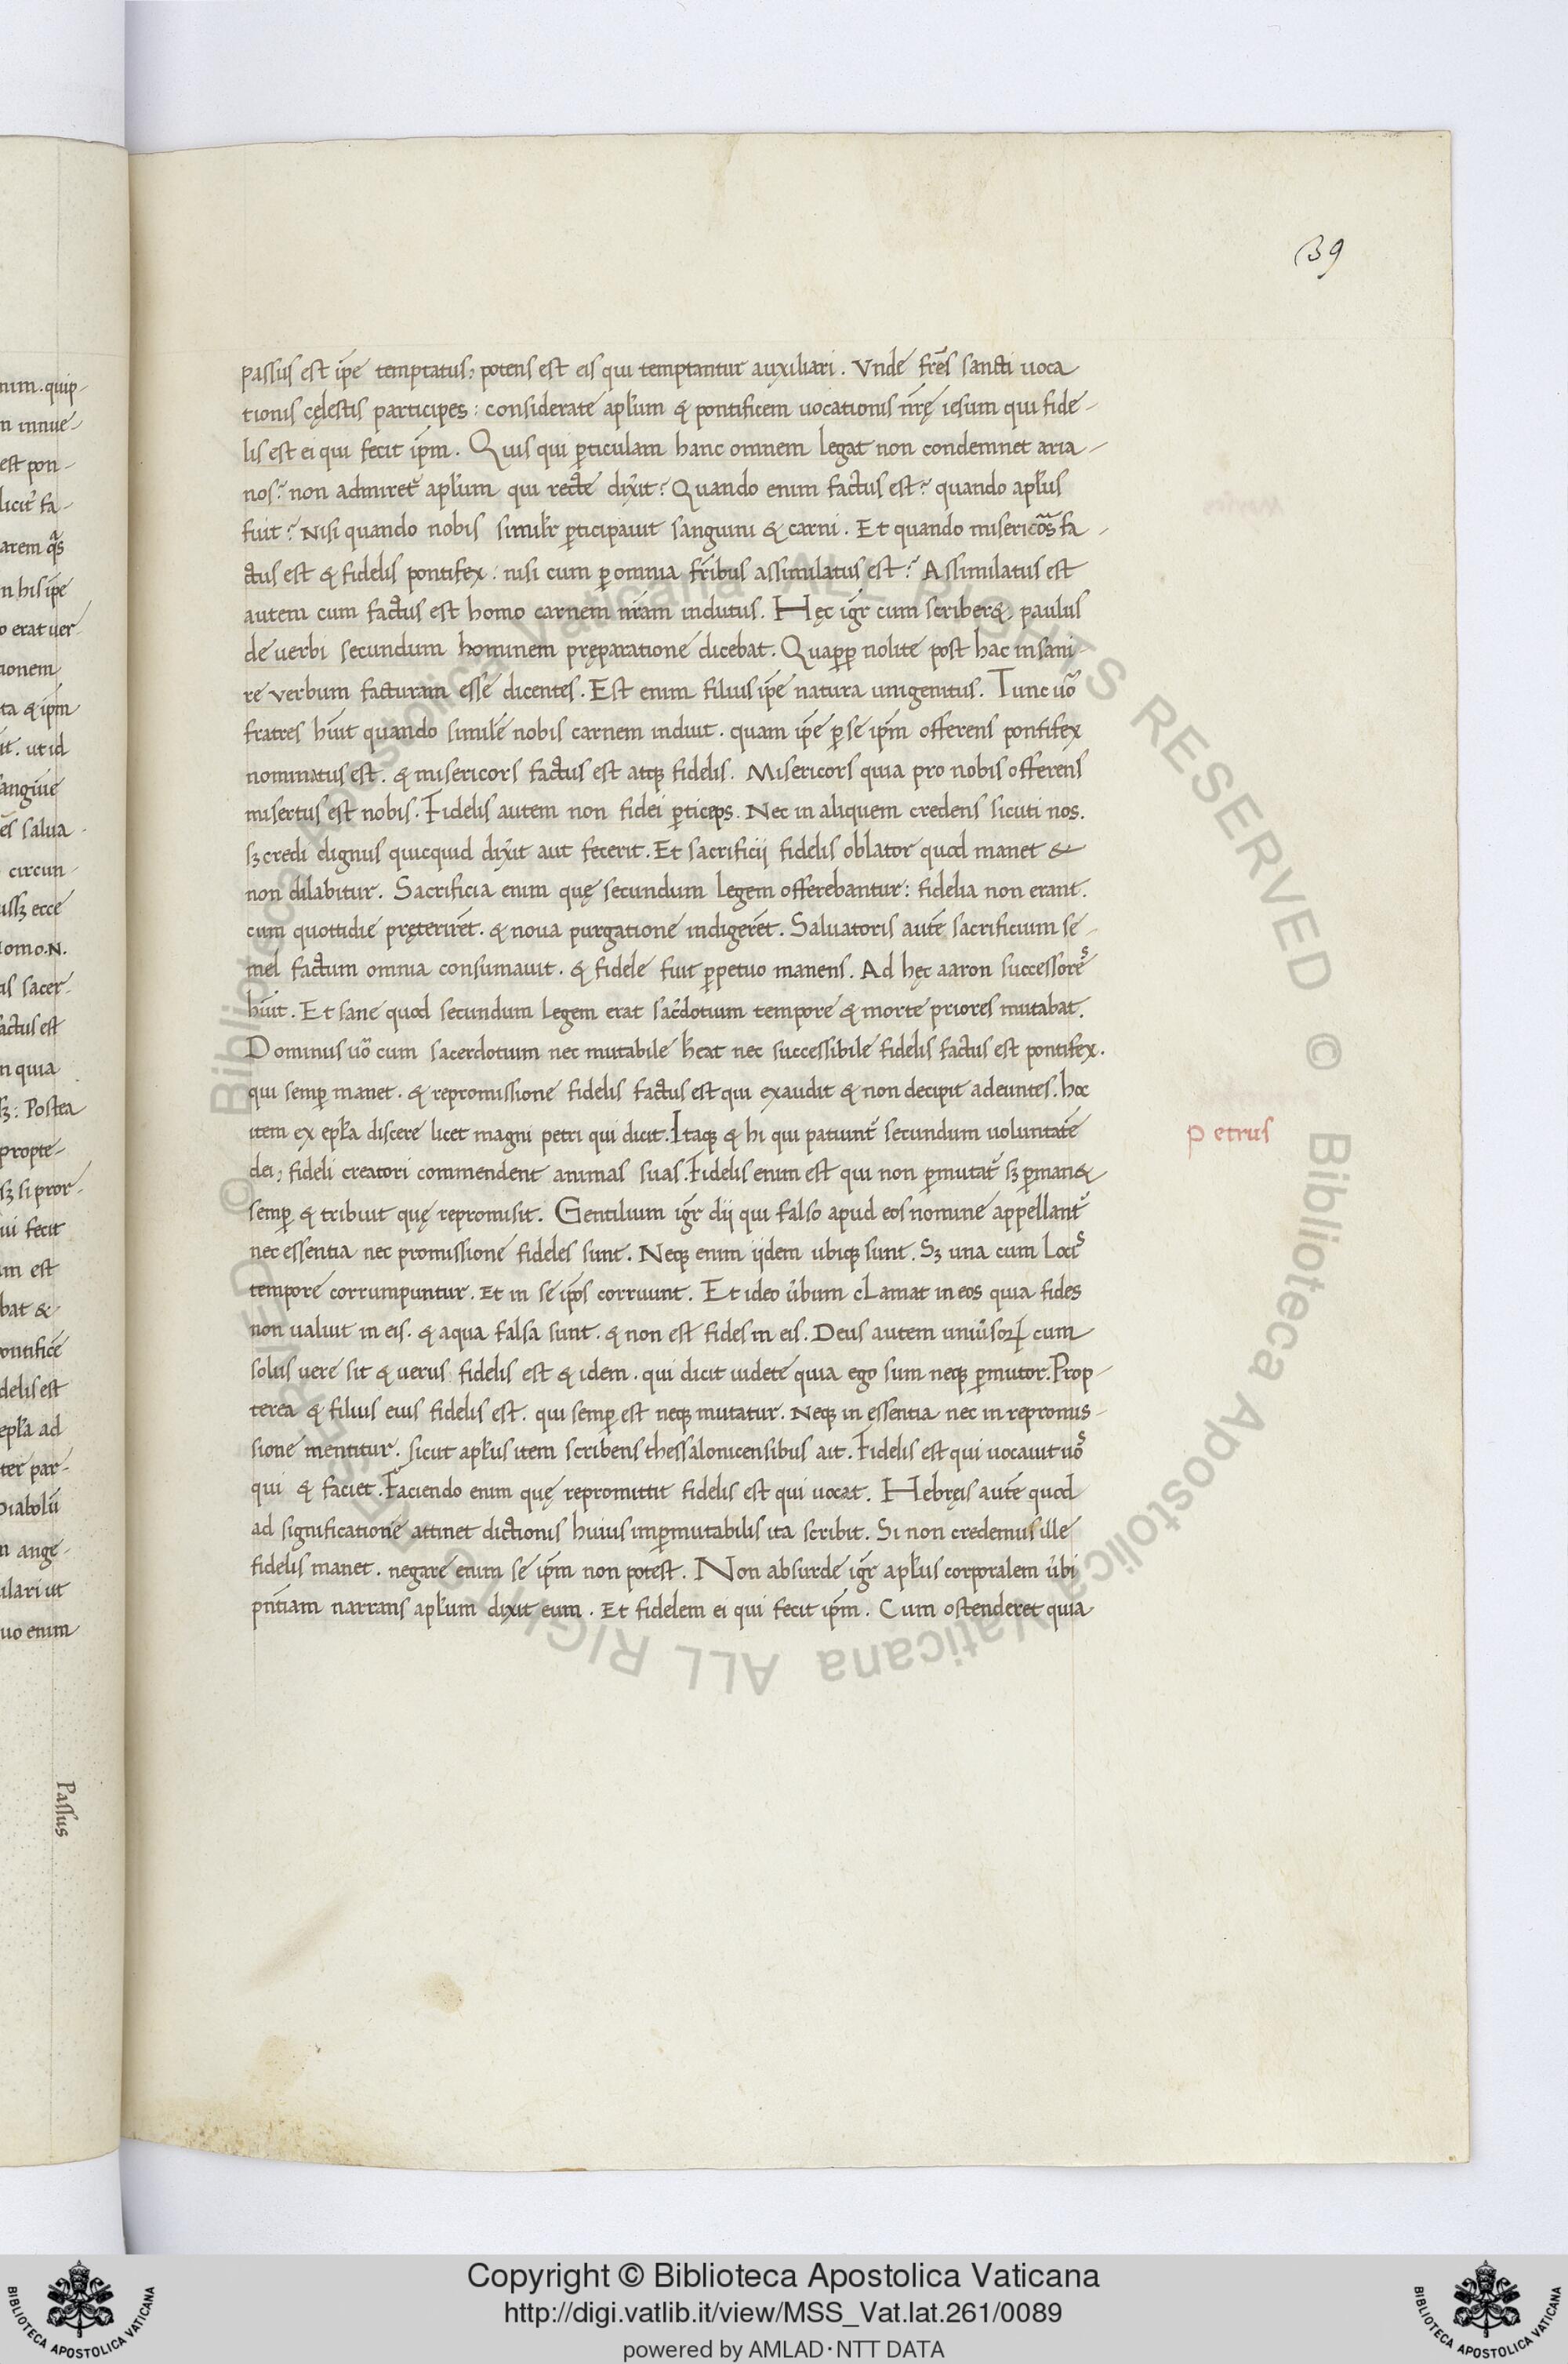 39
passus est ip̄e temptatus, potens est eis qui temptantur auxiliari. Vnde fr̄es sancti uoca
tionis cęlestis participes: considerate ap̄lum & pontificem uocationis nr̄ę iesum qui fide-
lis est ei qui fecit ip̄m. Quis qui ꝑticulam hanc omnem legat non condemnet aria-
nos? non admiret᷑ ap̄lum qui recte dixit? Quando enim factus est? quando ap̄lus
fuit? Nisi quando nobis similr̄ ꝑticipauit sanguini & carni. Et quando misericōs fa-
ctus est & fidelis pontifex: nisi cum ꝑ omnia fr̄ibus assimilatus est? Assimilatus est
autem cum factus est homo carnem nr̄am indutus. Hęc igr̄ cum scriber&, paulus
de uerbi secundum hominem pręparatione dicebat. Quaꝓꝑ nolite post hac insani-
re verbum facturam esse dicentes. Est enim filius ip̄e natura unigenitus. Tunc uō
fratres hīuit quando simile nobis carnem induit. quam ip̄e ꝑ se ip̄m offerens pontifex
nominatus est. & misericors factus est atqꝫ fidelis. Misericors quia pro nobis offerens
misertus est nobis. Fidelis autem non fidei ꝑticeps. Nec in aliquem credens sicuti nos.
sꝫ credi dignus quicquid dixit aut fecerit. Et sacrificij fidelis oblator quod manet &
non dilabitur. Sacrificia enim quę secundum legem offerebantur: fidelia non erant.
cum quottidie pręterirēt. & noua purgatione indigerēt. Saluatoris autē sacrificium se-
mel factum omnia consumauit. & fidele fuit ꝑpetuo manens. Ad hęc aaron successores
hīuit. Et sane quod secundum legem erat sac̄dotium tempore & morte priores mutabat.
Dominus uō cum sacerdotium nec mutabile hēat nec successibile fidelis factus est pontifex.
qui semꝑ manet. & repromissione fidelis factus est qui exaudit & non decipit adeuntes. hoc
item ex epl̄a discere licet magni petri qui dicit. Itaqꝫ & hi qui patiunt᷑ secundum uoluntatē
dei, fideli creatori commendent animas suas. Fidelis enim est qui non ꝑmutat᷑ sꝫ ꝑman&
semꝑ & tribuit quę repromisit. Gentilium igr̄ dij qui falso apud eos nomine appellant᷑
nec essentia nec promissione fideles sunt. Neqꝫ enim ijdem ubiqꝫ sunt. Sꝫ una cum locis
tempore corrumpuntur. Et in se ip̄os corruunt. Et ideo ūbum clamat in eos quia fides
non ualuit in eis. & aqua falsa sunt. & non est fides in eis. Deus autem uniūsoꝝ cum
solus uere sit & uerus fidelis est & idem. qui dicit uidete quia ego sum neqꝫ ꝑmutor. Prop-
terea & filius eius fidelis est. qui semꝑ est neqꝫ mutatur. Neqꝫ in essentia nec in repromis-
sione mentitur. sicut ap̄lus item scribens thessalonicensibus ait. Fidelis est qui uocauit uos
qui & faciet. Faciendo enim quę repromittit fidelis est qui uocat. Hebręis autē quod
ad significatione attinet dictionis huius imꝑmutabilis ita scribit. Si non credemus ille
fidelis manet. negare enim se ip̄m non potest. Non absurde igr̄ ap̄lus corporalem ūbi
pn̄tiam narrans ap̄lum dixit eum. Et fidelem ei qui fecit ip̄m. Cum ostenderet quia
Petrus
Passus
Copyright © Biblioteca Apostolica Vaticana
http://digi.vatlib.it/view/MSS_Vat.lat.261/0089
powered by AMLAD·NTT DATA